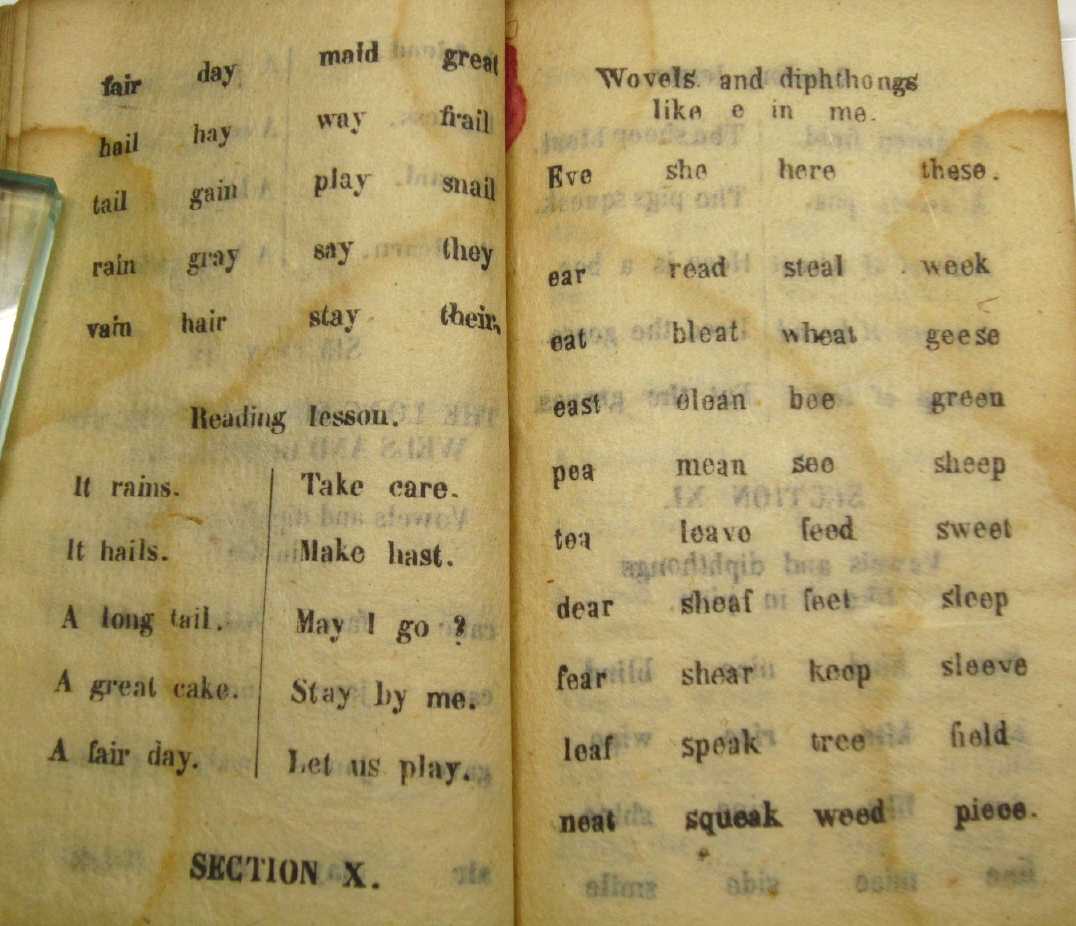 fair day maid great
hail hay way frail
tail gain play snail
rain gray say they
vain hair stay their,
Reading lesson.
It rains. Take care.
It hails. Make hast.
A long tail. May I go ?
A great cake. Stay by me.
A fair day. Let us play.
SECTION X.
Wovels and diphthongs
like e in me.
Eve she here these.
ear read steal week
eat bleat wheat geese
east clean bee green
pea mean see sheep
tea leave feed sweet
dear sheaf feet sleep
fear shear keep sleeve
leaf speak tree field
neat squeak weed piece.